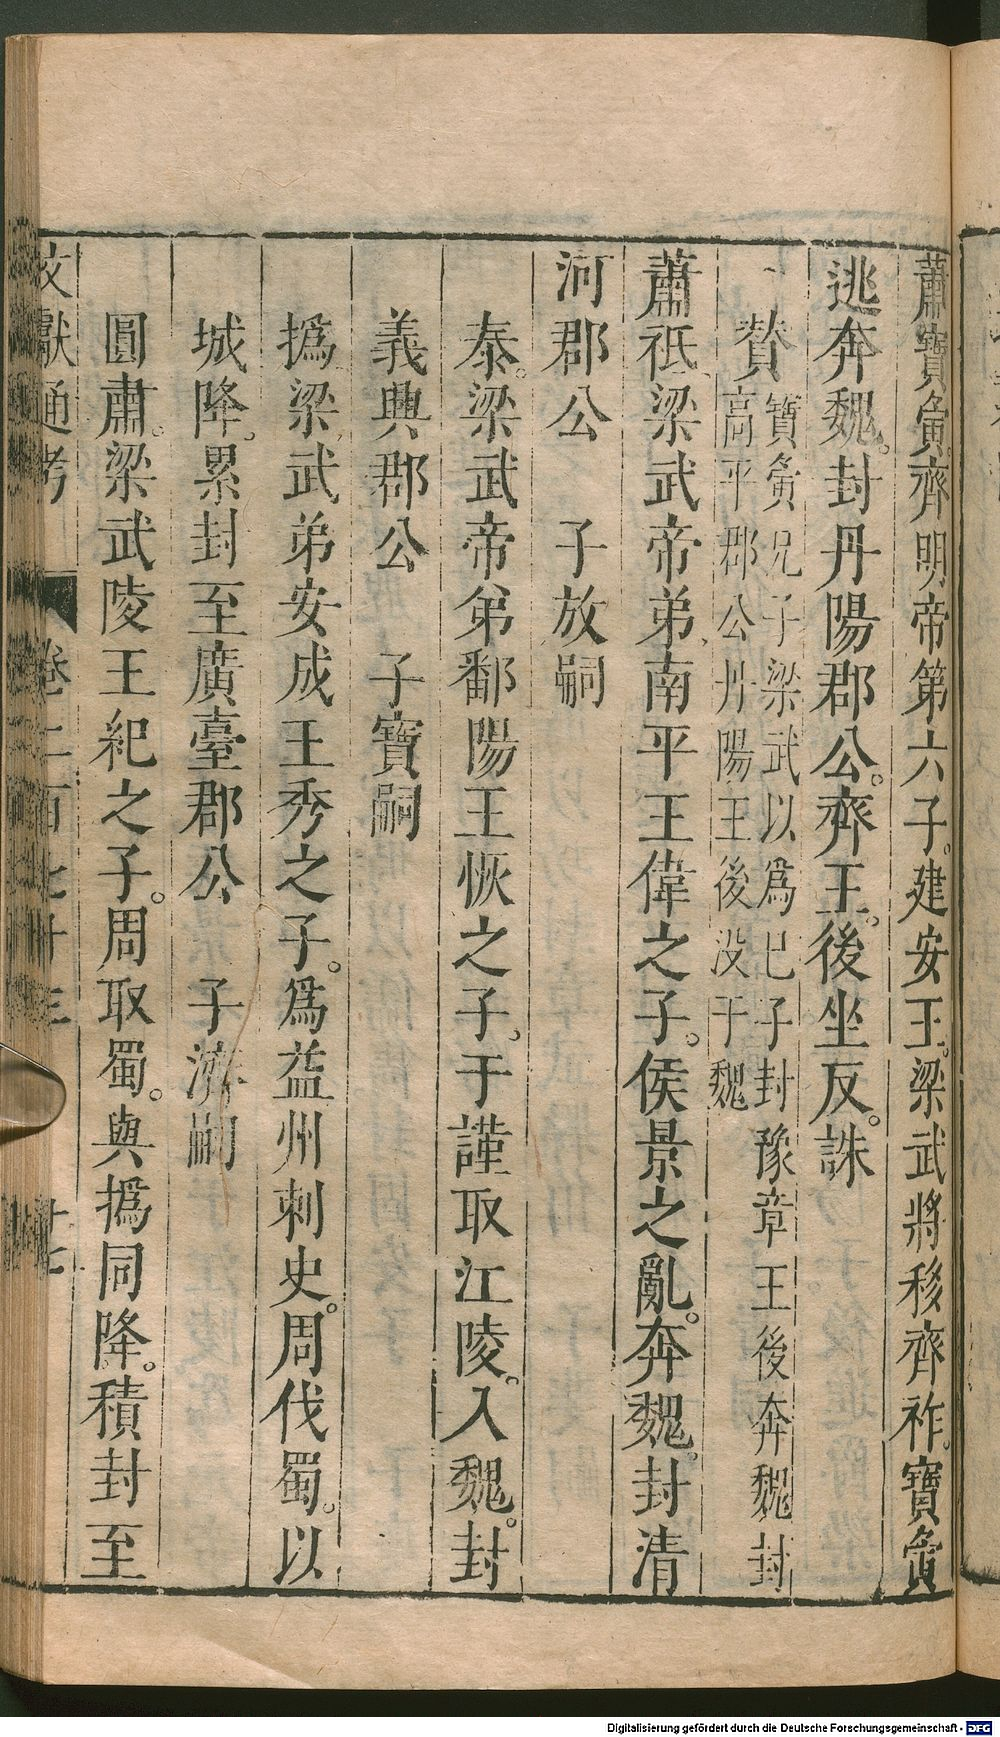 蕭寶夤齊明帝第六子。建安王。梁武將移齊祚。寶夤
逃奔魏。封丹陽郡公。齊王。後坐反。誅
贊
寶夤兄子梁武以爲己子封豫章王後奔魏封
高平郡公丹陽王後没于魏
蕭祗梁武帝弟南平王偉之子。侯景之亂。奔魏。封清
河郡公　子放嗣
泰。梁武帝弟鄱陽王恢之子。于謹取江陵。入魏。封
義興郡公　子寶嗣
撝梁武弟安成王秀之子。爲益州刺史。周伐蜀。以
城降。累封至廣臺郡公　子濟嗣
圓肅。梁武陵王紀之子。周取蜀。與撝同降。積封至
文獻通考　卷二百七十三　廿七
Digitalisierung gefördert durch die Deutsche Forschungsgemeinschaft - DFG